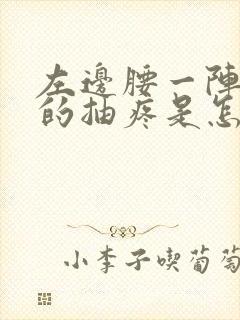 左邊腰一陣
的抽疼是怎
小李子喫葡萄